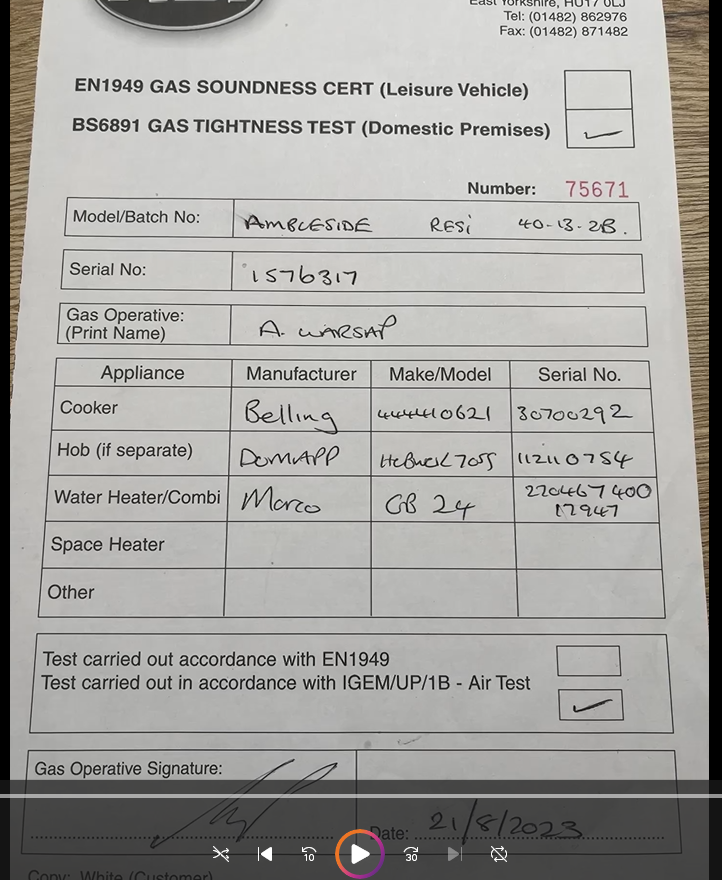 East Yorkshire, HU17 0LJ
Tel: (01482) 862976
Fax: (01482) 871482
EN1949 GAS SOUNDNESS CERT (Leisure Vehicle)
BS6891 GAS TIGHTNESS TEST (Domestic Premises)
Number: 75671
Model/Batch No: AMBLESIDE RESi 40-13-2B.
Serial No: 1576317
Gas Operative: (Print Name) A. WARSAP
Appliance Manufacturer Make/Model Serial No.
Cooker Belling 444410621 30700292
Hob (if separate) DOMAPP 112110754
Water Heater/Combi Morco GB 24 220467400
17947
Space Heater
Other
Test carried out accordance with EN1949
Test carried out in accordance with IGEM/UP/1B - Air Test
Gas Operative Signature:
Date: 21/8/2023
10 30
Copy: White (Customer)